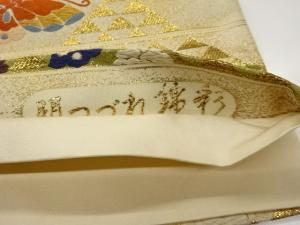 明つづれ錦彩